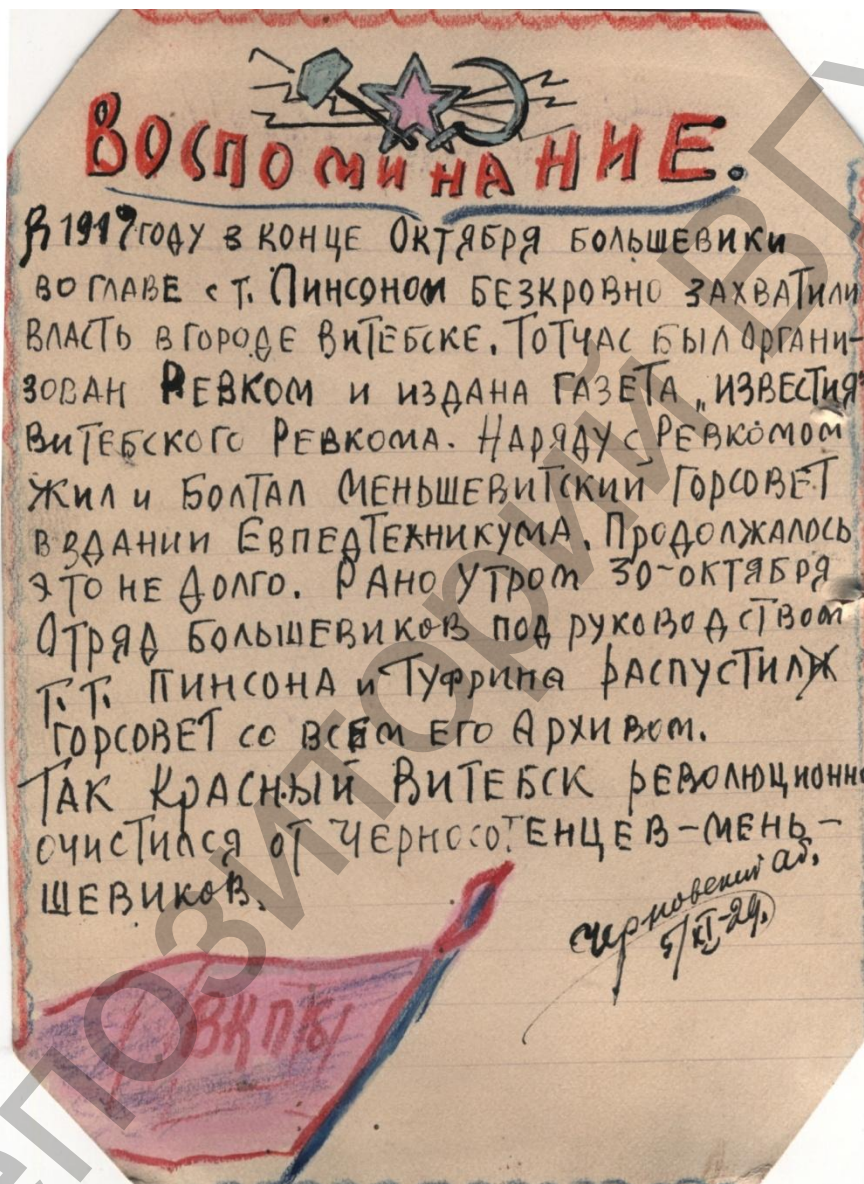 Воспоминание.
В 1917 году в конце Октября большевики
во главе с т. Пинсоном безкровно захватили
власть в городе Витебске. Тотчас был органи-
зован Ревком и издана газета „Известия"
Витебского Ревкома. Наряду с Ревкомом
жил и болтал меньшевитский горсовет
в здании Евпедтехникума. Продолжалось
это не долго. Рано утром 30-октября
Отряд большевиков под руководством
т.т. Пинсона и Туфрина распустил
горсовет со всем его Архивом.
Так Красный Витебск революционно
очистился от черносотенцев-мень-
шевиков.
Черновский аб.
5/XI-29.
ВКП/б/
РЕПОЗИТОРИЙ ВГУ